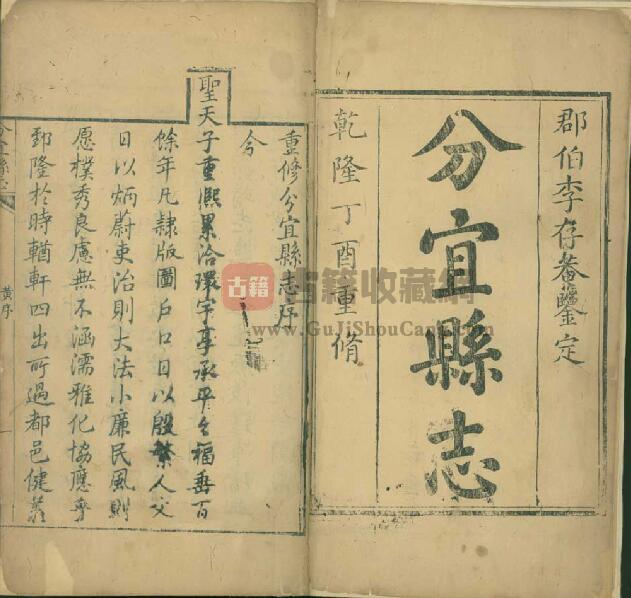 郡伯李存菴鑒定
分宜縣志
乾隆丁酉重脩
重修分宜縣志序
今
聖天子重熙累洽環宇享承平之福垂百
餘年凡隷版圖戶口日以殷繁人文
日以炳蔚吏治則大法小廉民風則
愿樸秀良慮無不涵濡雅化協應
郅隆於時輶軒四出所過都邑健
黄序
一
古籍
古籍收藏網
www.GuJiShouCang.com